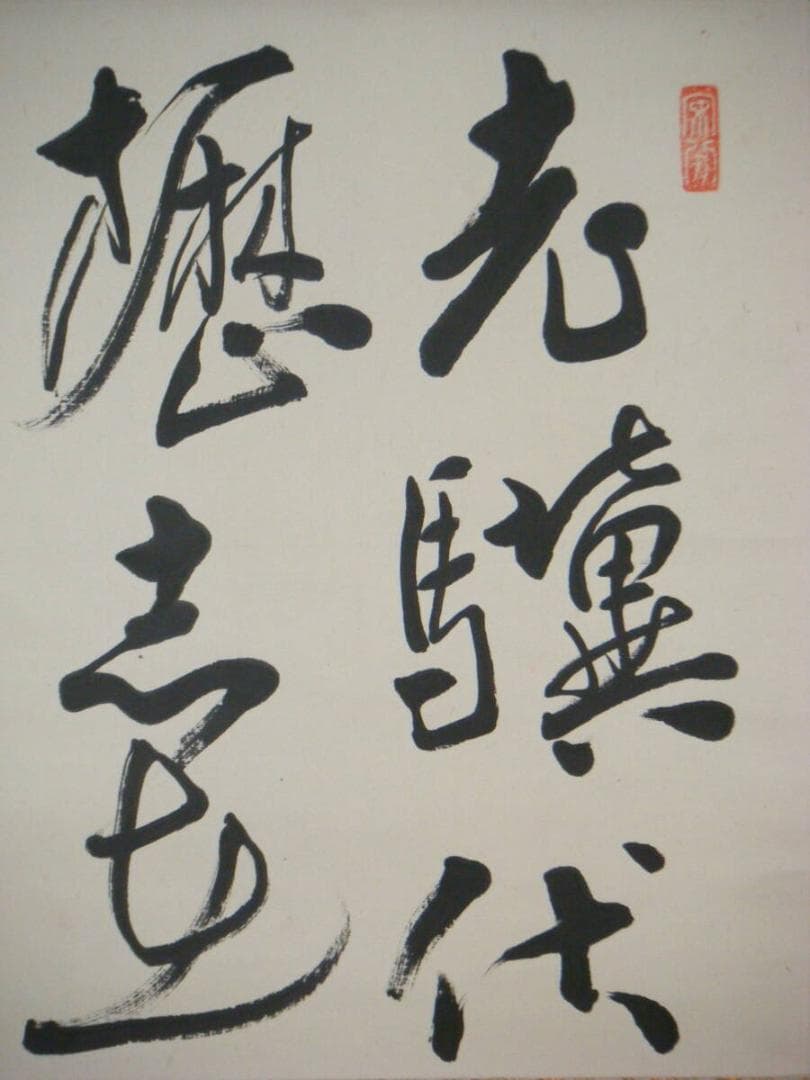 老驥伏
櫪志在